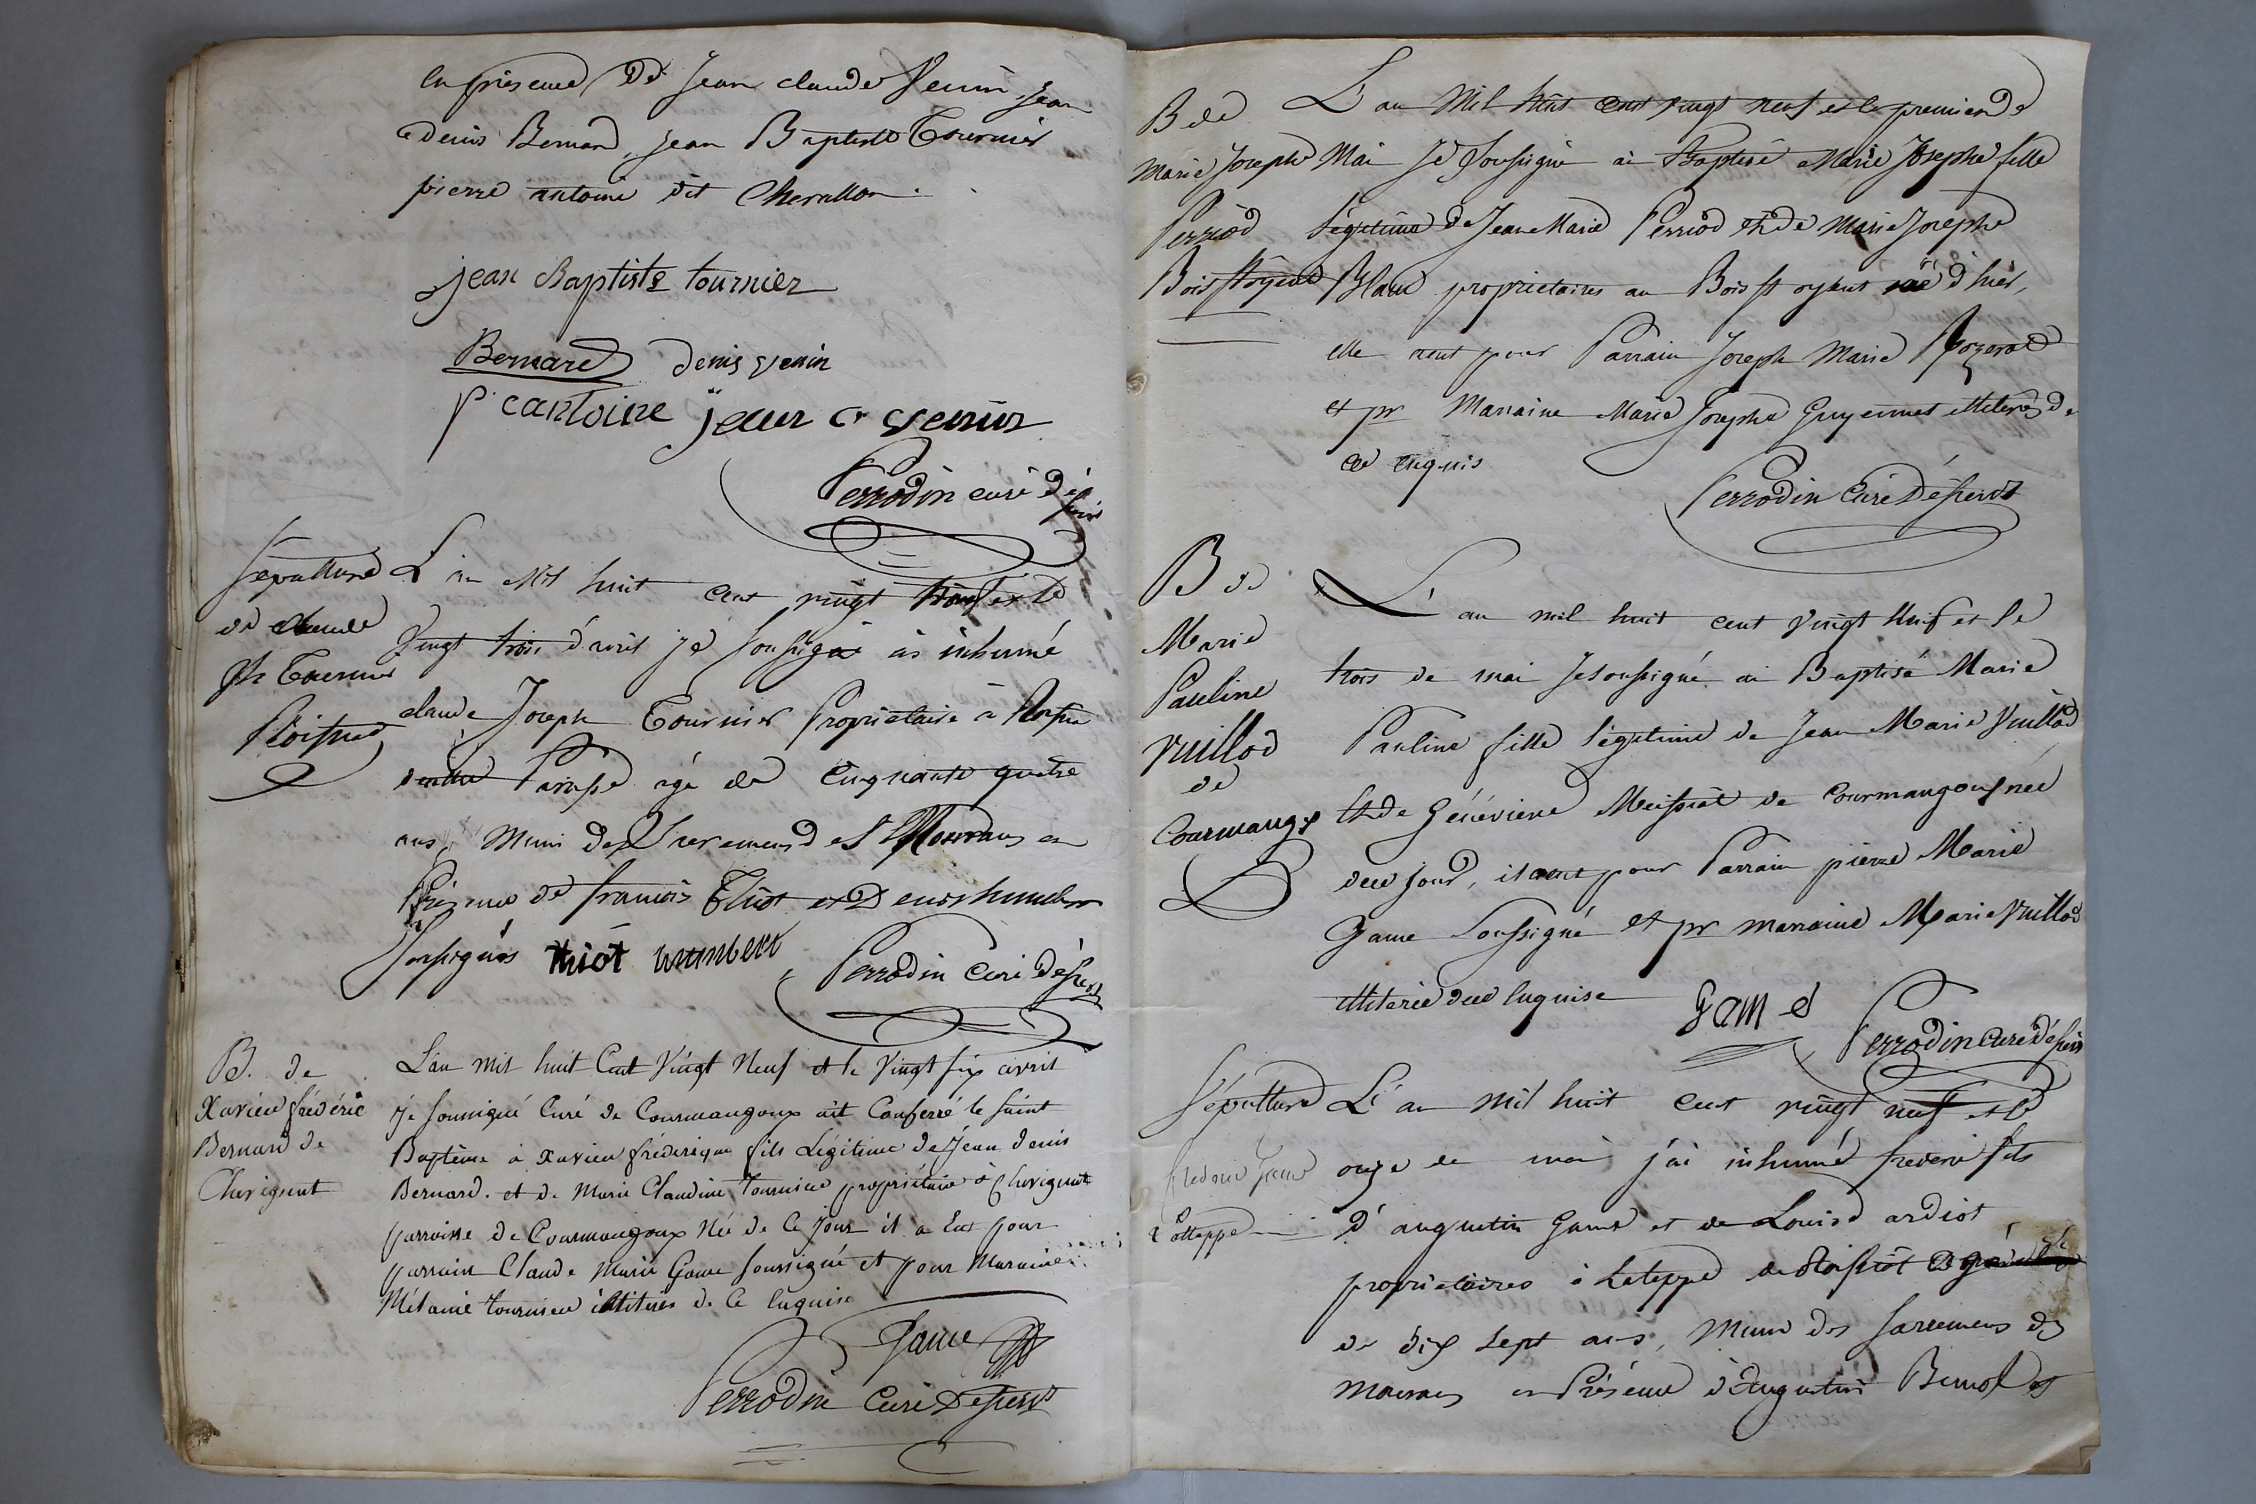 en présence De Jean claude Venin, Jean
denis Bernard, jean Baptiste Tournier
pierre antoine dit Chevallon.
jean Baptiste tournier
Bernard denis venin
P. antoine jean c venin
Perrodin curé
Sépulture
de claude
Jh Tournier
L'an Mil huit cent vingt et le
Vingt trois d'avril je soussigné ai inhumé
claude Joseph Tournier Propriétaire à
Paroisse agé de Cinquante quatre
ans Muni des Sacremens des Mourans en
Présence de françois Thiot et Denis humbert
Soussignés thiot humbert Perrodin Curé
B. de
Xavier frédéric
Bernard de
Chevignat
L'an mil huit Cent Vingt Neuf et le Vingt six avril
je soussigné Curé de Courmangoux ait Conferré le saint
Baptême à Xavier fréderique fils Légitime de Jean denis
Bernard. et de Marie Claudine Tournier propriétaire à Chevignat
parroisse de Courmangoux Née de Ce Jour il a Eut pour
parrain Claude Marie Game soussigné et pour Maraine
Mélanie tournier illitérés de Ce enquise
Game
Perrodin Curé
B de
Marie Josephe
Perriod
Bois
L'an Mil huit cent vingt neuf et le premier de
Mai Je soussigné ai Baptisé Marie Josephe fille
légitime de Jean Marie Perriod et de Marie Josephe
Blanc proprietaires au Bois née d'hier,
elle aeut pour Parrain Joseph Marie
et pr Marraine Marie Josephe Guyennet illiterés de
ce enquis
Perrodin Curé
B de
Marie
Pauline
Vuillod
de
Courmangx
L'an mil huit cent Vingt Neuf et le
trois de mai Je soussigné ai Baptisé Marie
Pauline fille légitime de Jean Marie Vuillod
et de Géneviève de Courmangoux née
dece jour, il aeut pour Parrain pierre Marie
Game Soussigné et pr marraine Marie Vuillod
illiterée dece enquise Game
Perrodin Curé
Sépulture
frederic Game
L'an Mil huit cent vingt neuf et le
onze de mai j'ai inhumé frederic fils
d'augustin Game et de Louise ardiot
proprietaires à Lateppe de
de dix sept ans, Muni des sacremens des
Mourans en Présence d'Augustin et